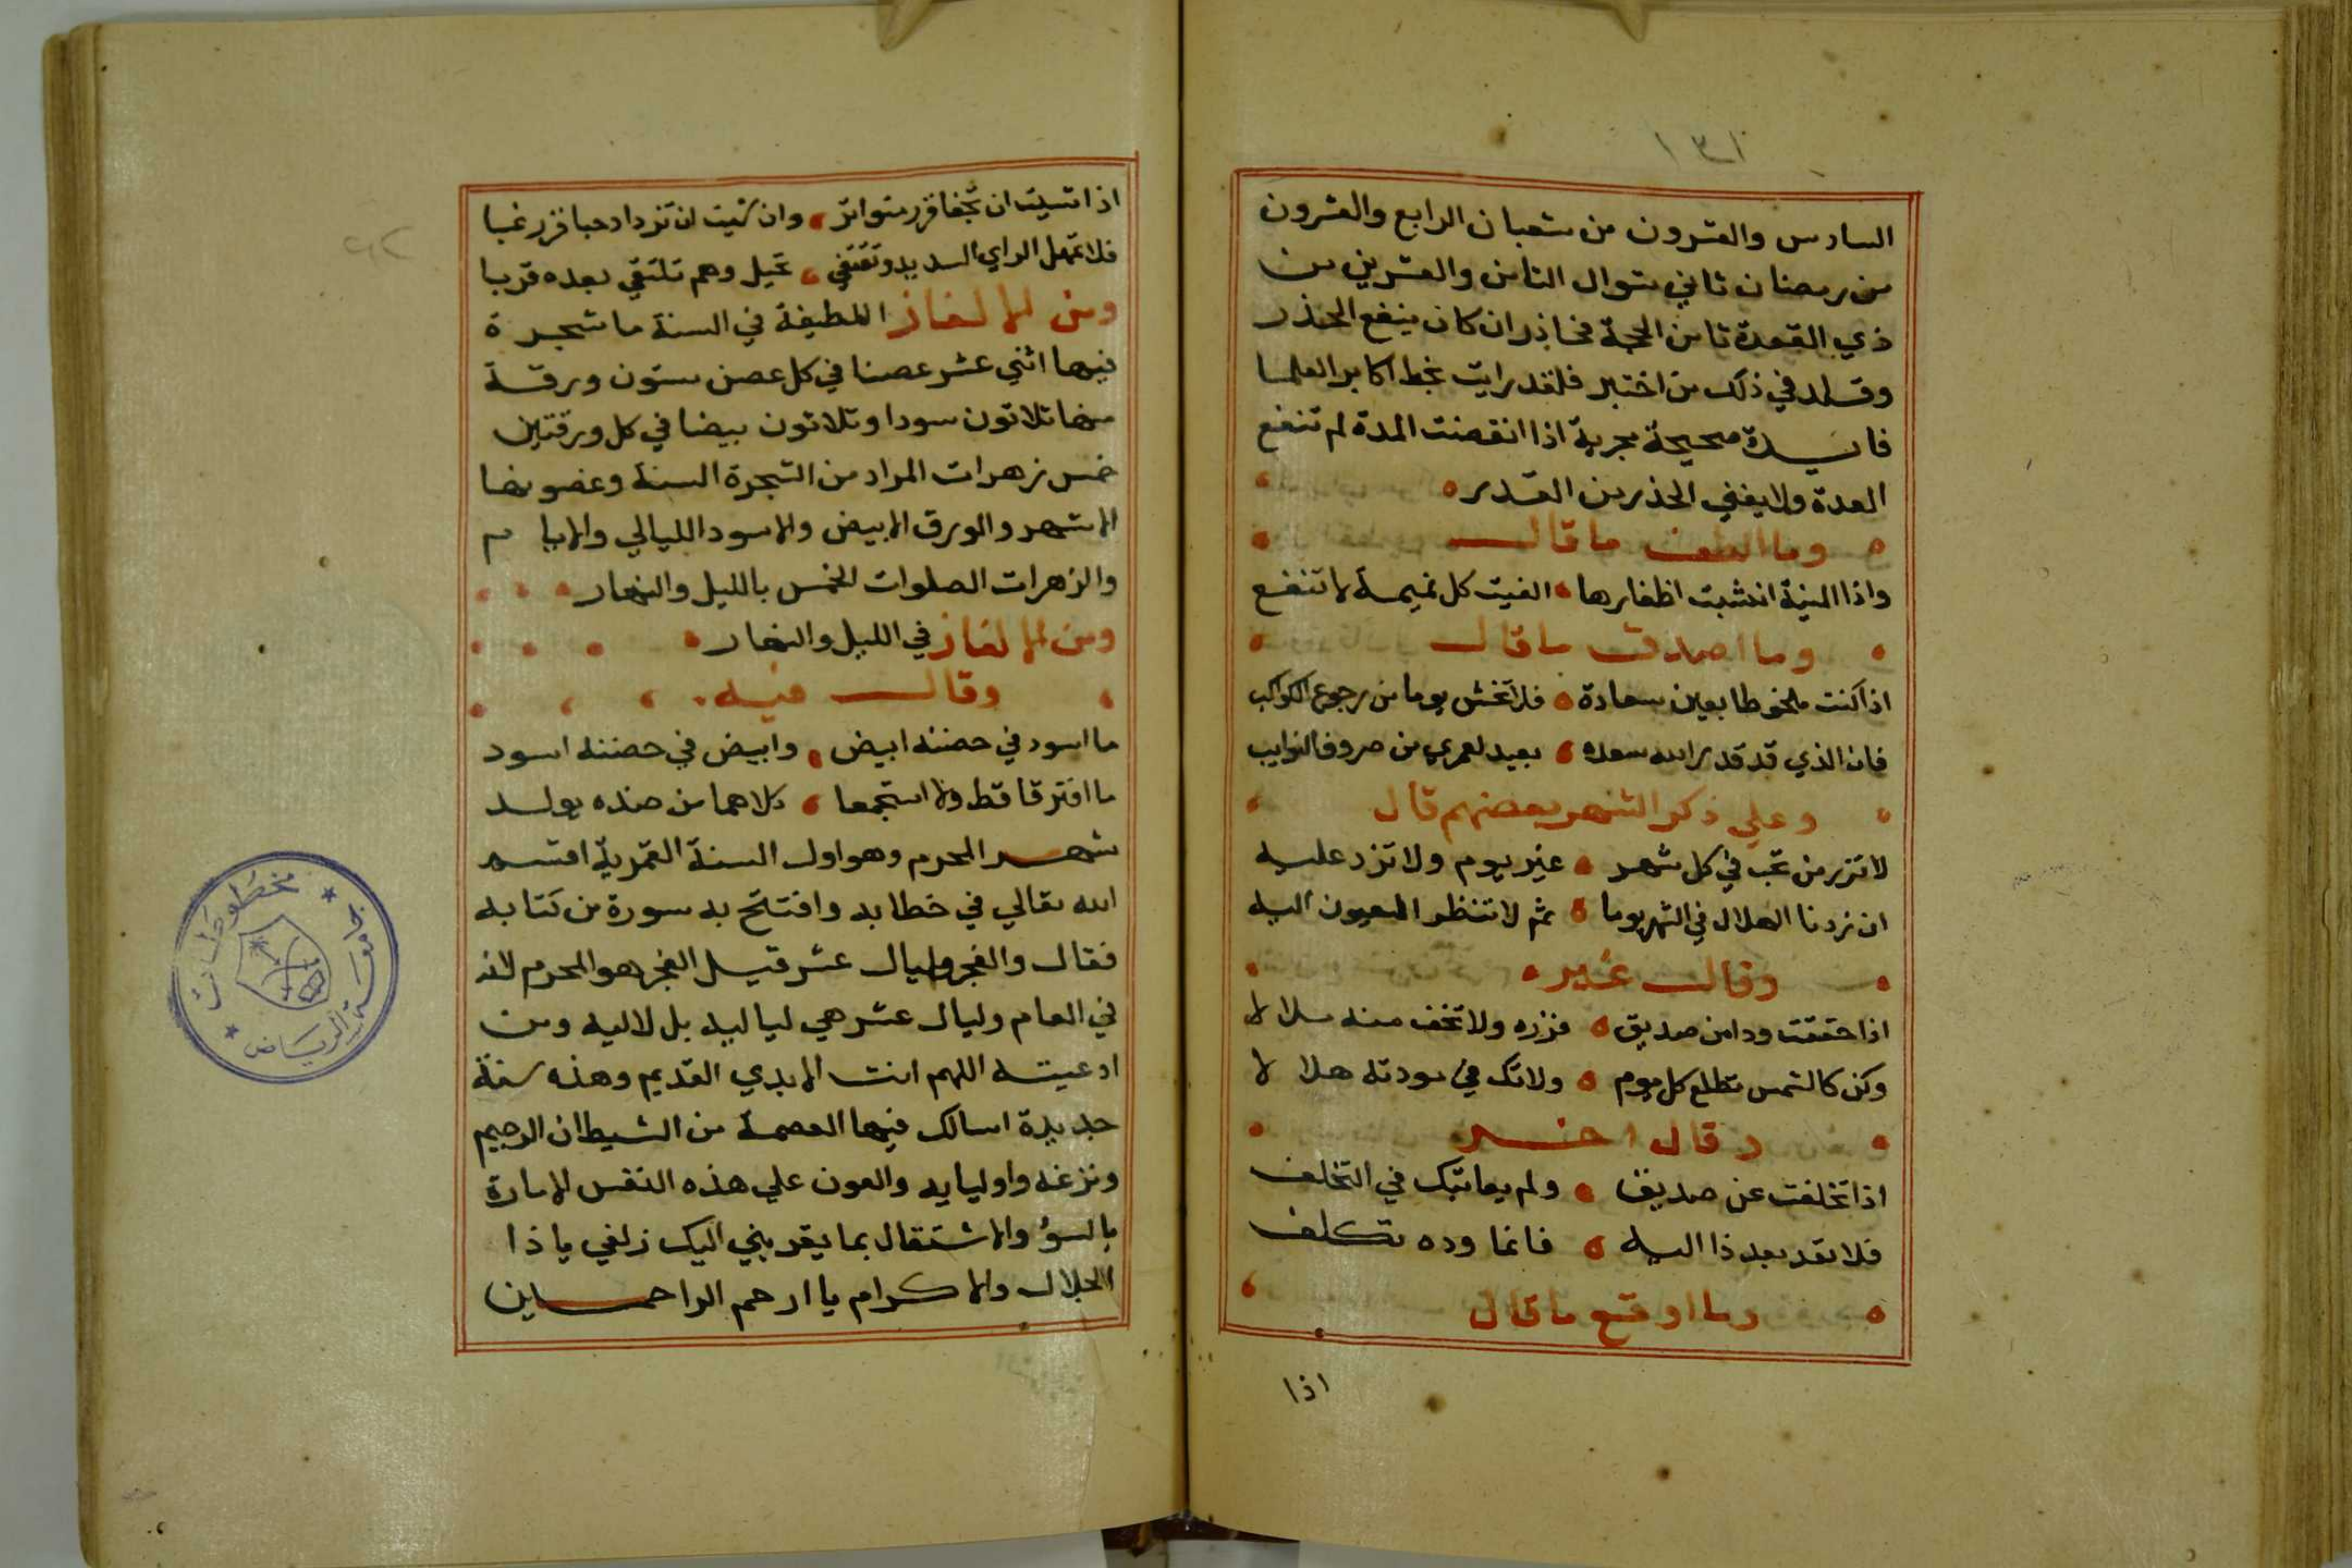 ١٣١
السادس والعشرون من شعبان الرابع والعشرون
من رمضان ثاني شوال الثامن والعشرين من
ذي القعدة ثامن الحجة فحاذر ان كان ينفع الحذر
وقلد في ذلك من اختبر فلقد رايت بخط اكابر العلما
فايدة صحيحة مجربة اذا انقضت المدة لم تنفع
العدة ولا يغني الحذر من القدر
وما الطف ما قال
واذا المنية انشبت اظفارها الفيت كل تميمة لا تنفع
وما اصدق ما قال
اذا كنت ملحوظا بعين سعادة فلا تخش يوما من رجوع الكواكب
فان الذي قد قدر الله سعده بعيد لعمري من صروف النوايب
وعلي ذكر الشهر بعضهم قال
لا تزر من تحب في كل شهر غير يوم ولا تزد عليه
ان نردنا الهلال في الشهر يوما ثم لا تنظر العيون اليه
وقال غيره
اذا حققت ودا من صديق فزره ولا تخف منه ملالا
وكن كالشمس تطلع كل يوم ولا تك في مودته هلالا
وقال اخر
اذا تخلفت عن صديق ولم يعاتبك في التخلف
فلا تعد بعد ذا اليه فانما وده تكلف
وما اوقع ما قال
اذا
اذا شيت ان تجفا فزر متواتر وان شيت ان تزداد حبا فزر غبا
فلا تمهل الراي السديد وتقتفي تخيل وهم تلتقي بعده قربا
ومن الالغاز اللطيفة في السنة ما شجرة
فيها اثني عشر غصنا في كل غصن ستون ورقة
منها ثلاثون سودا وثلاثون بيضا في كل ورقتين
خمس زهرات المراد من الشجرة السنة وغصونها
الاشهر والورق الابيض والاسود الليالي والايام
والزهرات الصلوات الخمس بالليل والنهار
ومن الالغاز في الليل والنهار
وقال فيه
ما اسود في حضنه ابيض وابيض في حضنه اسود
ما افترقا قط ولا استجمعا كلاهما من ضده يولد
شهر المحرم وهو اول السنة القمرية اقسم
الله تعالي في خطابه وافتتح به سورة من كتابه
فقال والفجر وليال عشر قيل الفجر هو المحرم لانه
في العام وليال عشر هي لياليه بل لاليه ومن
ادعيته اللهم انت الابدي القديم وهذه سنة
جديدة اسالك فيها العصمة من الشيطان الرجيم
ونزغه واوليايه والعون علي هذه النفس الامارة
بالسؤ والاشتغال بما يقربني اليك زلفي يا ذا
الجلال والاكرام يا ارحم الراحمين
جامعة الرياض
مخطوطات